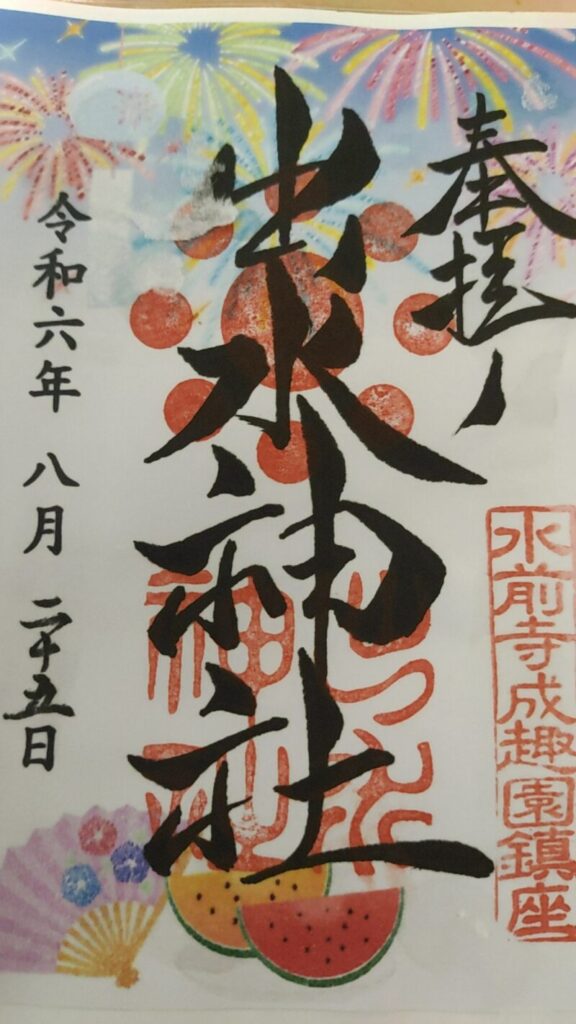 奉拝
水前寺成趣園鎮座
出水神社
令和六年 八月 二十五日